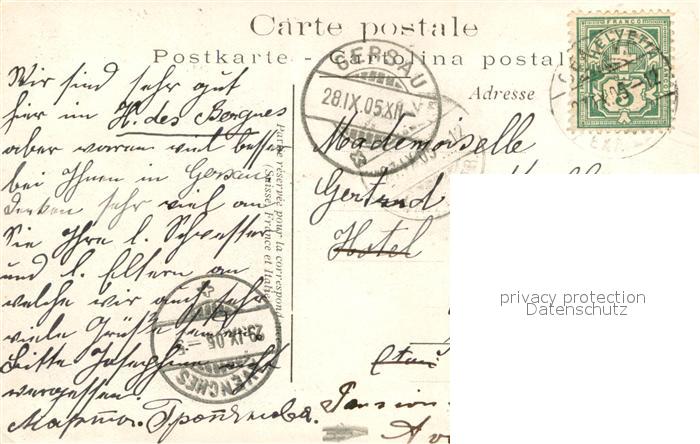 Carte postale
Postkarte - Cartolina postale
Adresse
HELVETIA
FRANCO
5
GERSAU
28.IX.05.XII
Wir sind sehr gut
hier im H. des Bergues
aber waren viel besser
bei Ihnen in Gersau
denken sehr viel an
Sie Ihre l. Schwester
und l. Eltern an
welche wir auch sehr
viele Grüße senden
Bitte Josephine nicht
vergessen.
Partie réservée pour la correspondance
Suisse, France et Italie
Mademoiselle
Gertrud
Hotel
29.IX.05
AVENCHES
Pension
privacy protection
Datenschutz